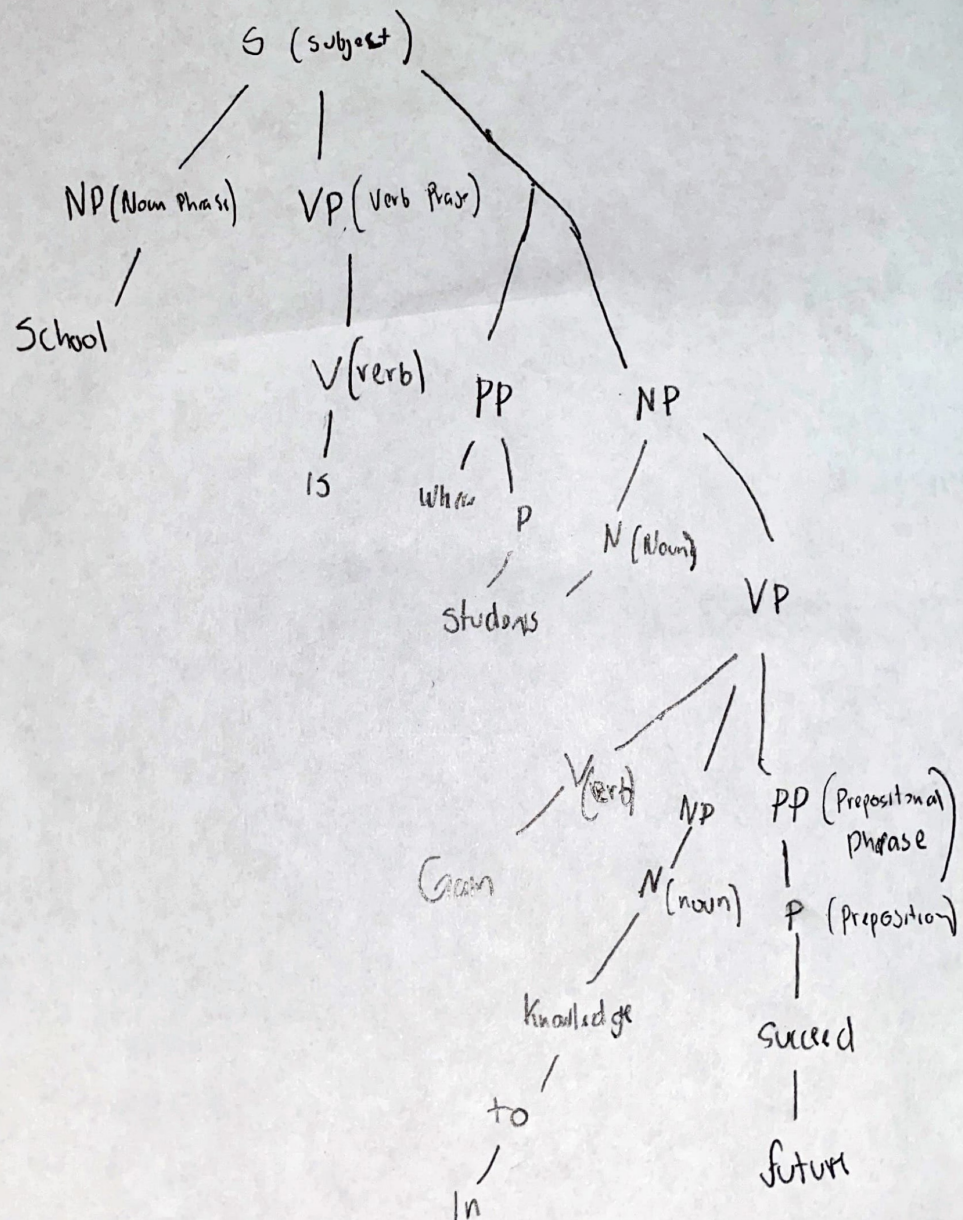 S (subject)
NP (Noun Phrase) VP (Verb Prase)
School
V (verb) PP NP
Is
P N (Noun)
Students VP
V(erb) NP PP (Prepositional
phrase)
Gain N (noun) P (Preposition)
Knowledge succeed
to
In future